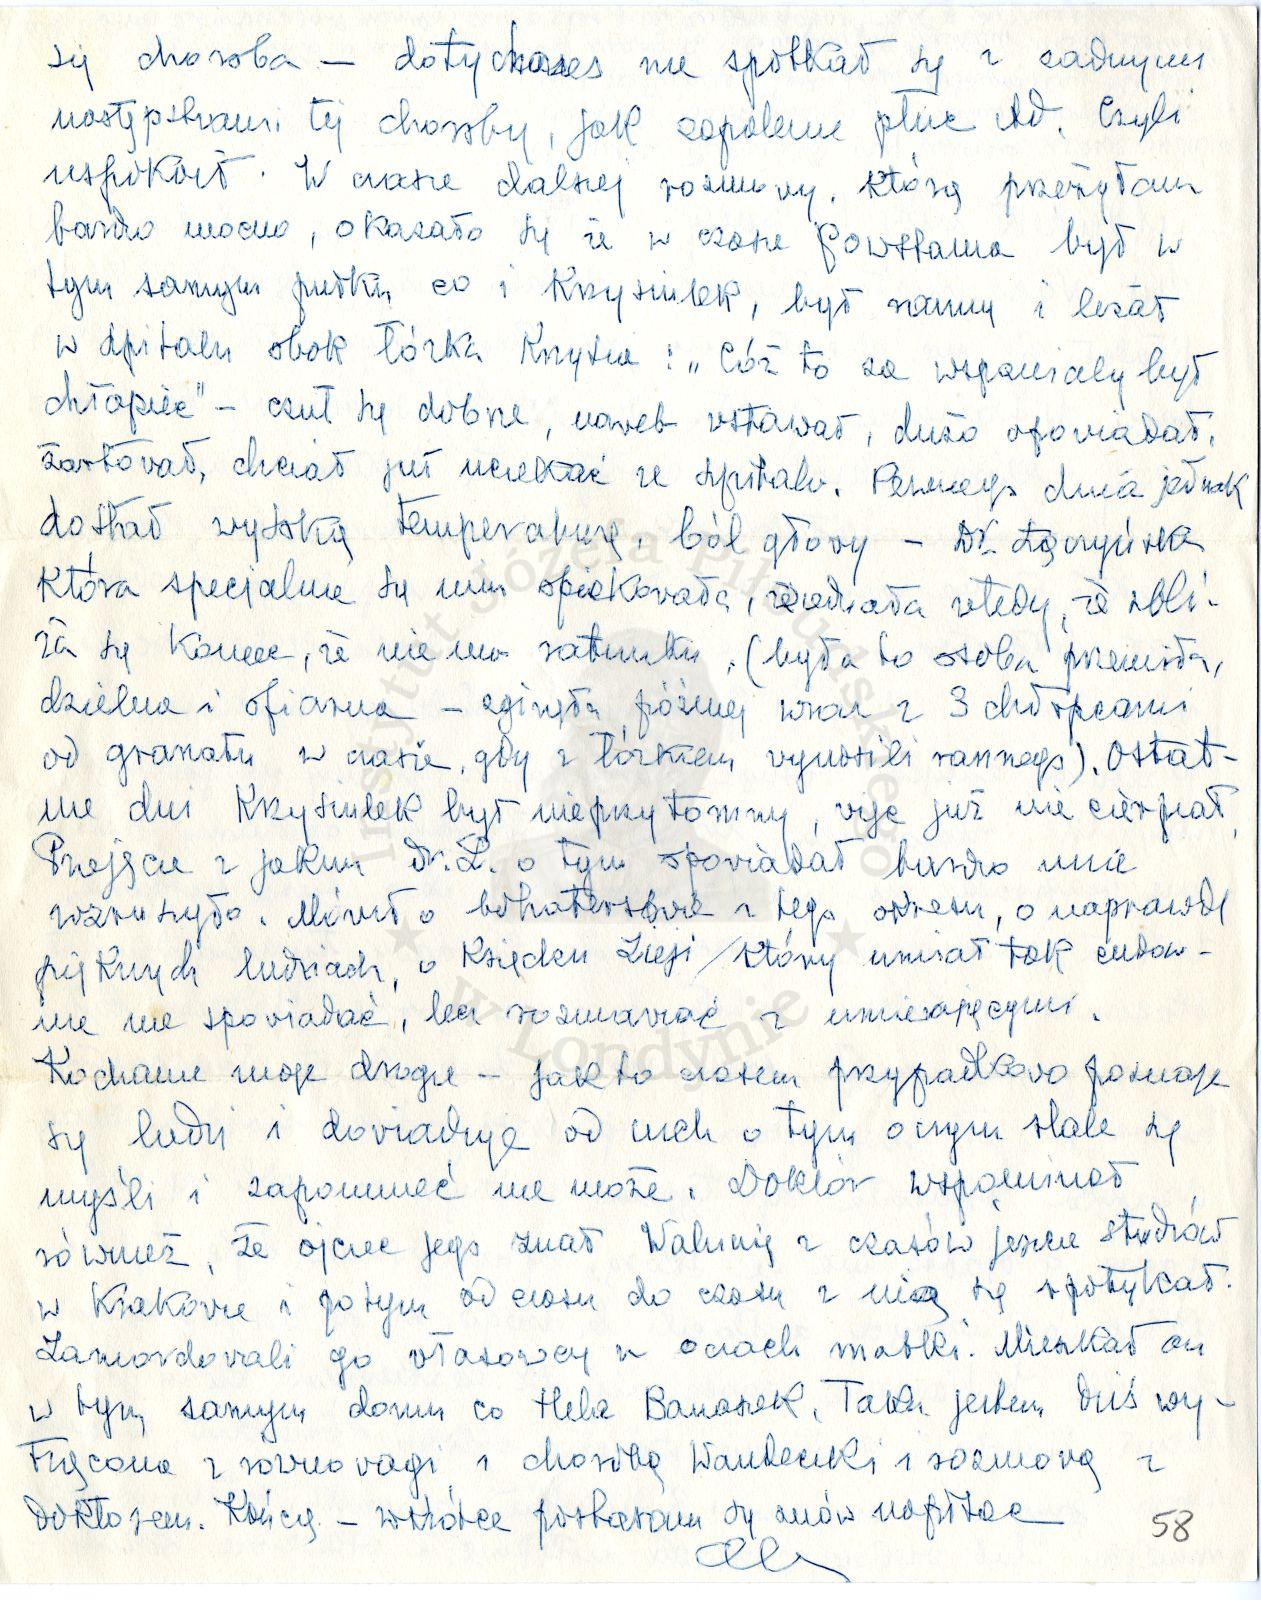 się choroba — dotychczas nie spotkał się z żadnymi
następstwami tej choroby, jak zapalenie płuc itd. Czyli
uspokoił. W czasie dalszej rozmowy, którą przeżyłam
bardzo mocno, okazało się że w czasie Powstania był w
tym samym pułku co i Krzysiulek, był ranny i leżał
w szpitalu obok łóżka Krzysia: „Cóż to za wspaniały był
chłopiec" — czuł się dobrze, nawet wstawał, dużo opowiadał,
żartował, chciał już uciekać ze szpitala. Pewnego dnia jednak
dostał wysoką temperaturę, ból głowy — Dr. Łęczyńska
która specjalnie się nim opiekowała, wiedziała wtedy, że zbli-
ża się koniec, że nie ma ratunku. (była to osoba przemiła,
dzielna i ofiarna — zginęła później wraz z 3 chłopcami
od granatu w czasie, gdy z łóżkiem wynosili rannego). Ostat-
nie dni Krzysiulek był nieprzytomny, więc już nie cierpiał.
Przejęcie z jakim dr. L. o tym opowiadał bardzo mnie
wzruszyło. Mówił o bohaterstwie z tego okresu, o naprawdę
pięknych ludziach, o Księdzu Ziei / który umiał tak cudow-
nie nie spowiadać, lecz rozmawiać z umierającymi.
Kochane moje drogie — jak to czasem przypadkowo poznaje
się ludzi i dowiaduje od nich o tym o czym stale się
myśli i zapomnieć nie może. Doktór wspominał
również, że ojciec jego znał Walunię z czasów jeszcze studiów
w Krakowie i potym od czasu do czasu z nią się spotykał.
Zamordowali go własowcy w oczach matki. Mieszkał on
w tym samym domu co Hela Banasek. Taka jestem dziś wy-
trącona z równowagi i chorobą Wandeczki i rozmową z
doktorem. Kończę — wkrótce postaram się znów napisać
58
Instytut Józefa Piłsudskiego
w Londynie